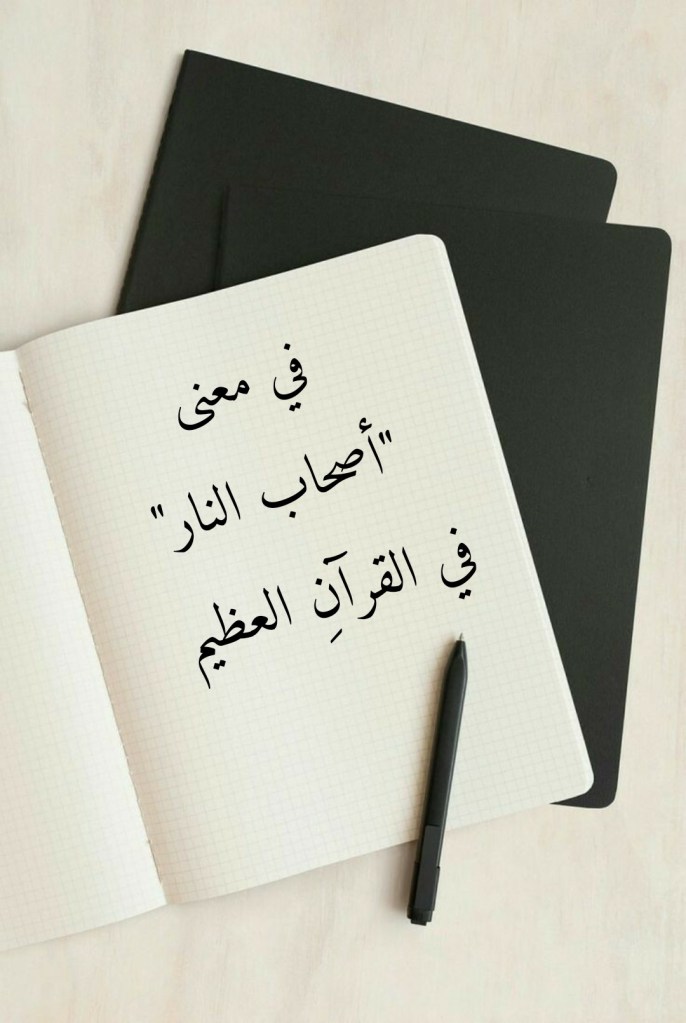 في معنى
"أصحاب النار"
في القرآنِ العظيم